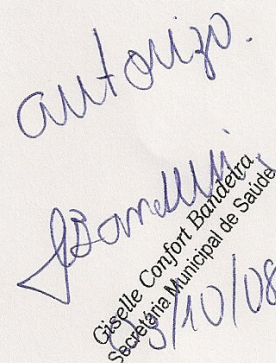 autorizo.
GBandeira
Giselle Confort Bandeira
Secretária Municipal de Saúde
/10/08